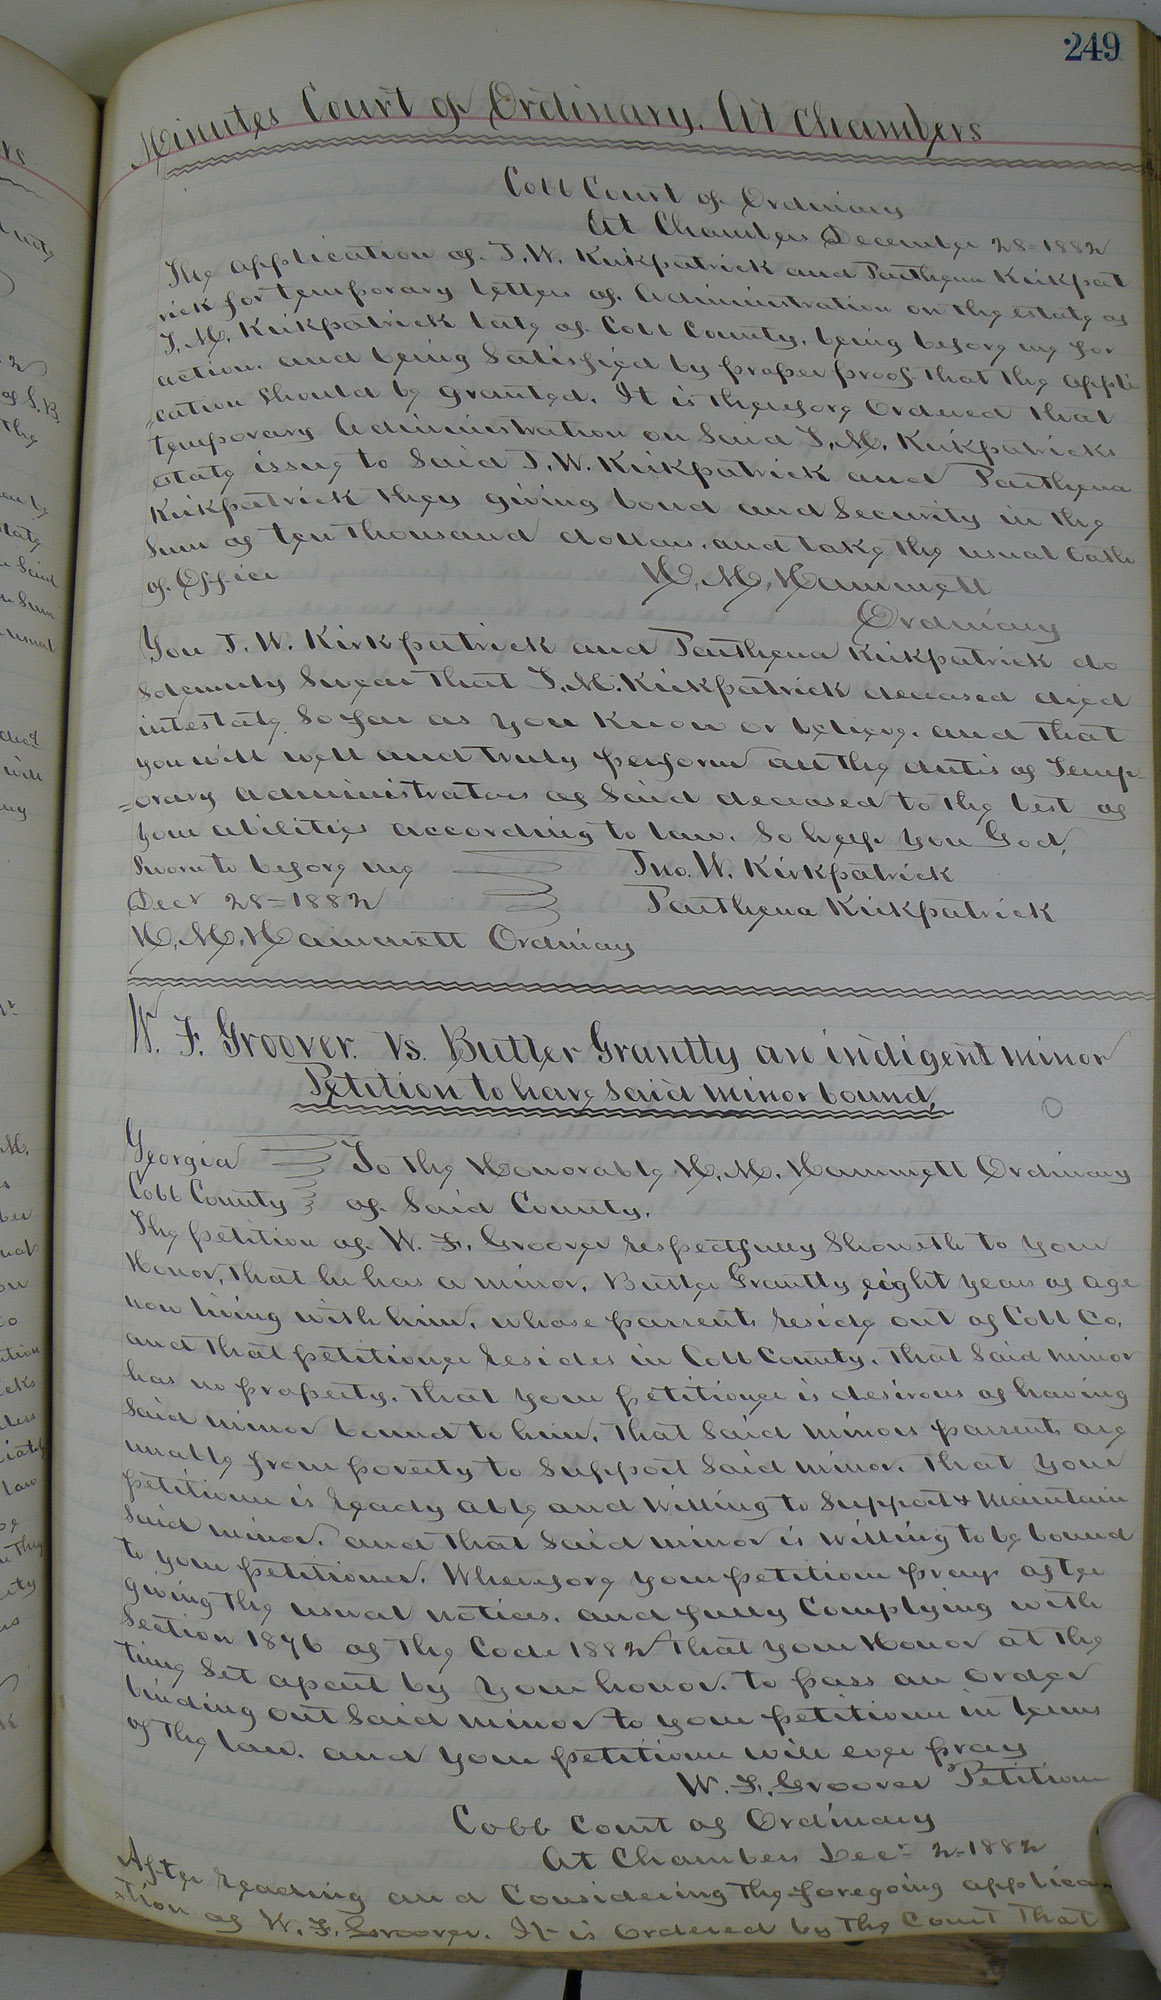 249
Minutes Court of Ordinary. At Chambers
Cobb Court of Ordinary
At Chambers December 28=1882
The application of J. W. Kirkpatrick and Parthena Kirkpat
=rick for temporary letters of Administration on the estate of
J. M. Kirkpatrick late of Cobb County, being before me for
action, and being Satisfied by proper proof that the appli
=cation should be granted. It is therefore Ordered that
temporary Administration on Said J. M. Kirkpatricks
estate issue to Said J. W. Kirkpatrick and Parthena
Kirkpatrick they giving bond and Security in the
Sum of ten thousand dollars, and take the usual Oath
of Office H. M. Hammett
Ordinary
You J. W. Kirkpatrick and Parthena Kirkpatrick do
Solemnly Swear that J. M. Kirkpatrick deceased died
intestate So far as you Know or believe, and that
you will well and truly perform all the duties of Temp
=orary Administrators of Said deceased to the best of
your abilities according to law. So help you God,
Sworn to before me Jno. W. Kirkpatrick
Decr 28=1882 Parthena Kirkpatrick
H. M. Hammett Ordinary
W. F. Groover. Vs. Butler Grantty an indigent minor
Petition to have said minor bound.
Georgia To the Honorable H. M. Hammett Ordinary
Cobb County of Said County.
The petition of W. F. Groover respectfully Showeth to your
Honor, that he has a minor, Butler Grantty eight years of age
now living with him, whose parrents reside out of Cobb Co,
and that petitioner resides in Cobb County, that Said minor
has no property, that your petitioner is desirous of having
Said minor bound to him, that Said minors parrents are
unable from poverty to Support Said minor, that your
petitioner is ready able and Willing to Support & Maintain
Said minor, and that Said minor is willing to be bound
to your petitioner. Wherefore your petitioner prays after
giving the usual notices, and fully Complying with
Section 1876 of the Code 1882 that your Honor at the
time Set apart by your honor, to pass an order
binding out Said minor to your petitioner in terms
of the law, and your petitioner will ever pray
W. F. Groover Petitioner
Cobb Court of Ordinary
At Chambers Dec= 2=1882
After reading and Considering the foregoing applica
=tion of W. F. Groover. It is ordered by the Court that